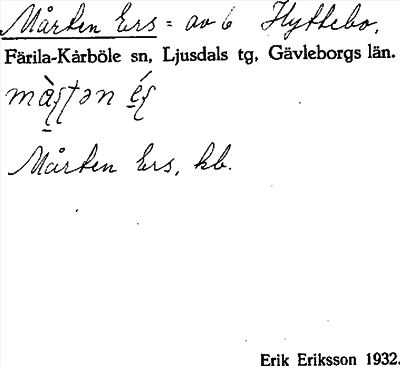 Mården Ers = av 6 Hyttebo,
Färila-Kårböle sn, Ljusdals tg, Gävleborgs län.
Mården Ers, kb.
Erik Eriksson 1932.